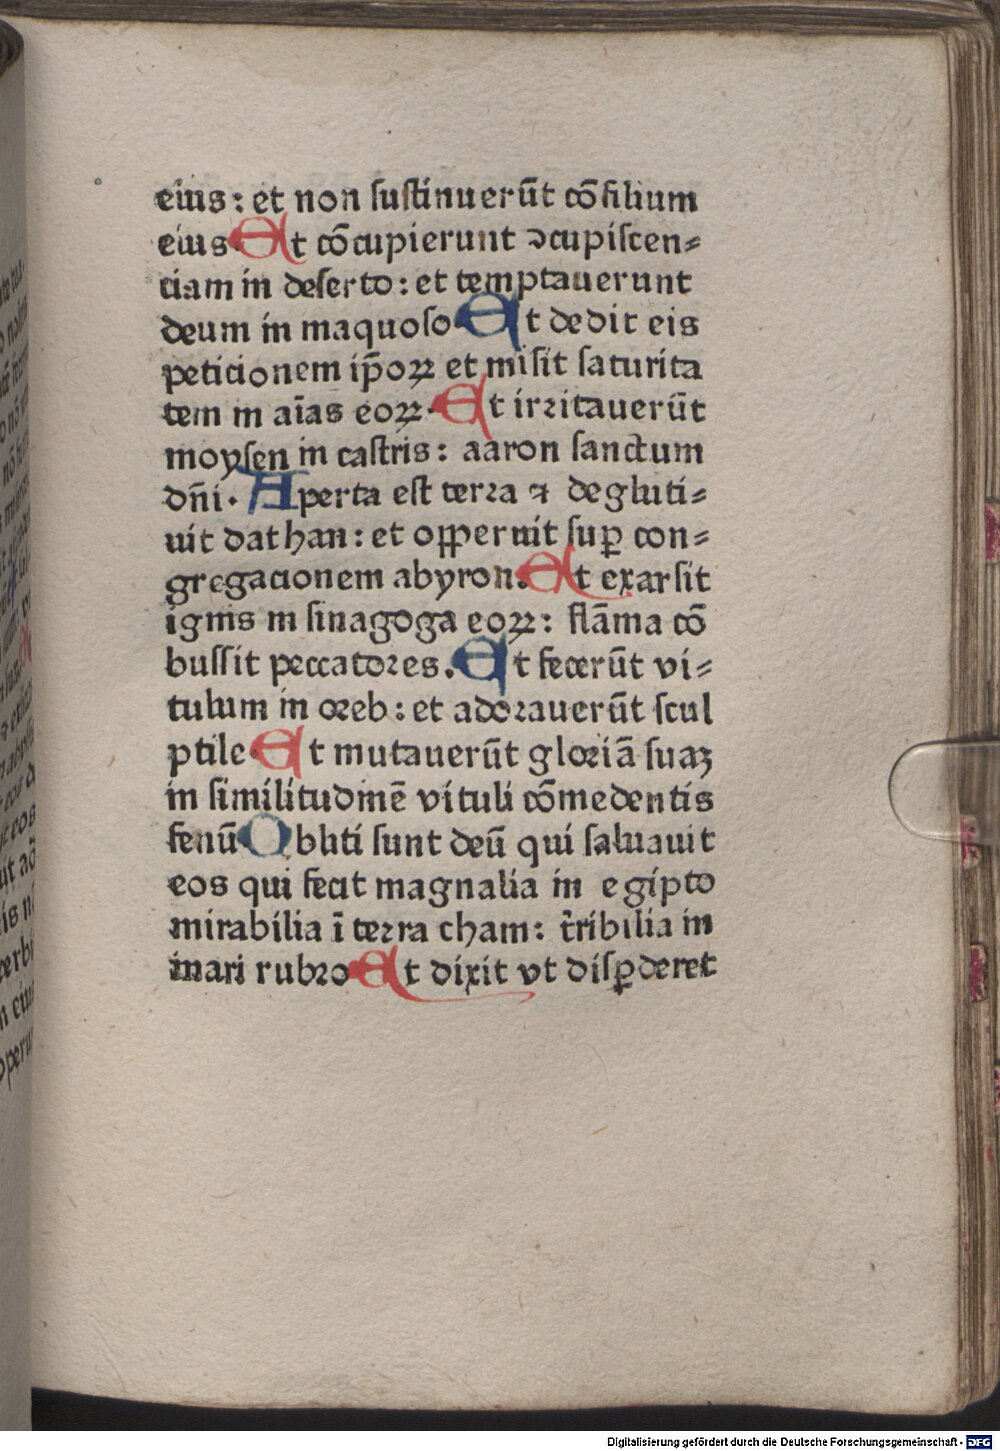 eius: et non ſuſtinuerūt cōſilium
eius Et cōcupierunt ↄcupiſcen⸗
ciam in deſerto: et temptauerunt
deum in maquoſo Et dedit eis
peticionem ip̄oꝝ et miſit ſaturita
tem in aīas eoꝝ. Et irꝛitauerūt
moyſen in caſtris: aaron ſanctum
dn̄i. Aperta eſt terꝛa ⁊ degluti⸗
uit dathan: et opperuit ſuꝑ con⸗
gregacionem abyron. Et exarſit
ignis in ſinagoga eoꝝ: flāma cō
buſſit peccatoꝛes. Et fecerūt vi⸗
tulum in oꝛeb: et adoꝛauerūt ſcul
ptile Et mutauerūt gloꝛiā ſuaꝫ
in ſimilitudinē vituli cōmedentis
fenū Obliti ſunt deū qui ſaluauit
eos qui fecit magnalia in egipto
mirabilia ī terꝛa cham: t̄ribilia in
mari rubꝛo Et dixit vt diſꝑderet
Digitalisierung gefördert durch die Deutsche Forschungsgemeinschaft - DFG